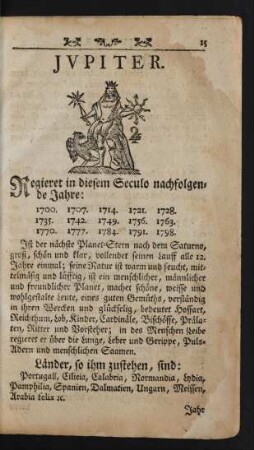 15
JVPITER.
Regieret in diesem Seculo nachfolgen-
de Jahre:
1700. 1707. 1714. 1721. 1728.
1735. 1742. 1749. 1756. 1763.
1770. 1777. 1784. 1791. 1798.
Ist der nächste Planet-Stern nach dem Saturno,
groß, schön und klar, vollendet seinen Lauff alle 12.
Jahre einmal; seine Natur ist warm und feucht, mit-
telmäßig und lüfftig, ist ein menschlicher, männlicher
und freundlicher Planet, machet schöne, weisse und
wohlgestalte Leute, eines guten Gemüths, verständig
in ihren Wercken und glückselig, bedeutet Hoffart,
Reichthum, Lob, Kinder, Cardinäle, Bischöffe, Präla-
ten, Ritter und Vorsteher; in des Menschen Leibe
regieret er über die Lunge, Leber und Gerippe, Puls-
Adern und menschlichen Saamen.
Länder, so ihm zustehen, sind:
Portugall, Cilicia, Calabria, Normandia, Lydia,
Pamphilia, Spanien, Dalmatien, Ungarn, Meissen,
Arabia felix ꝛc.
Jahr